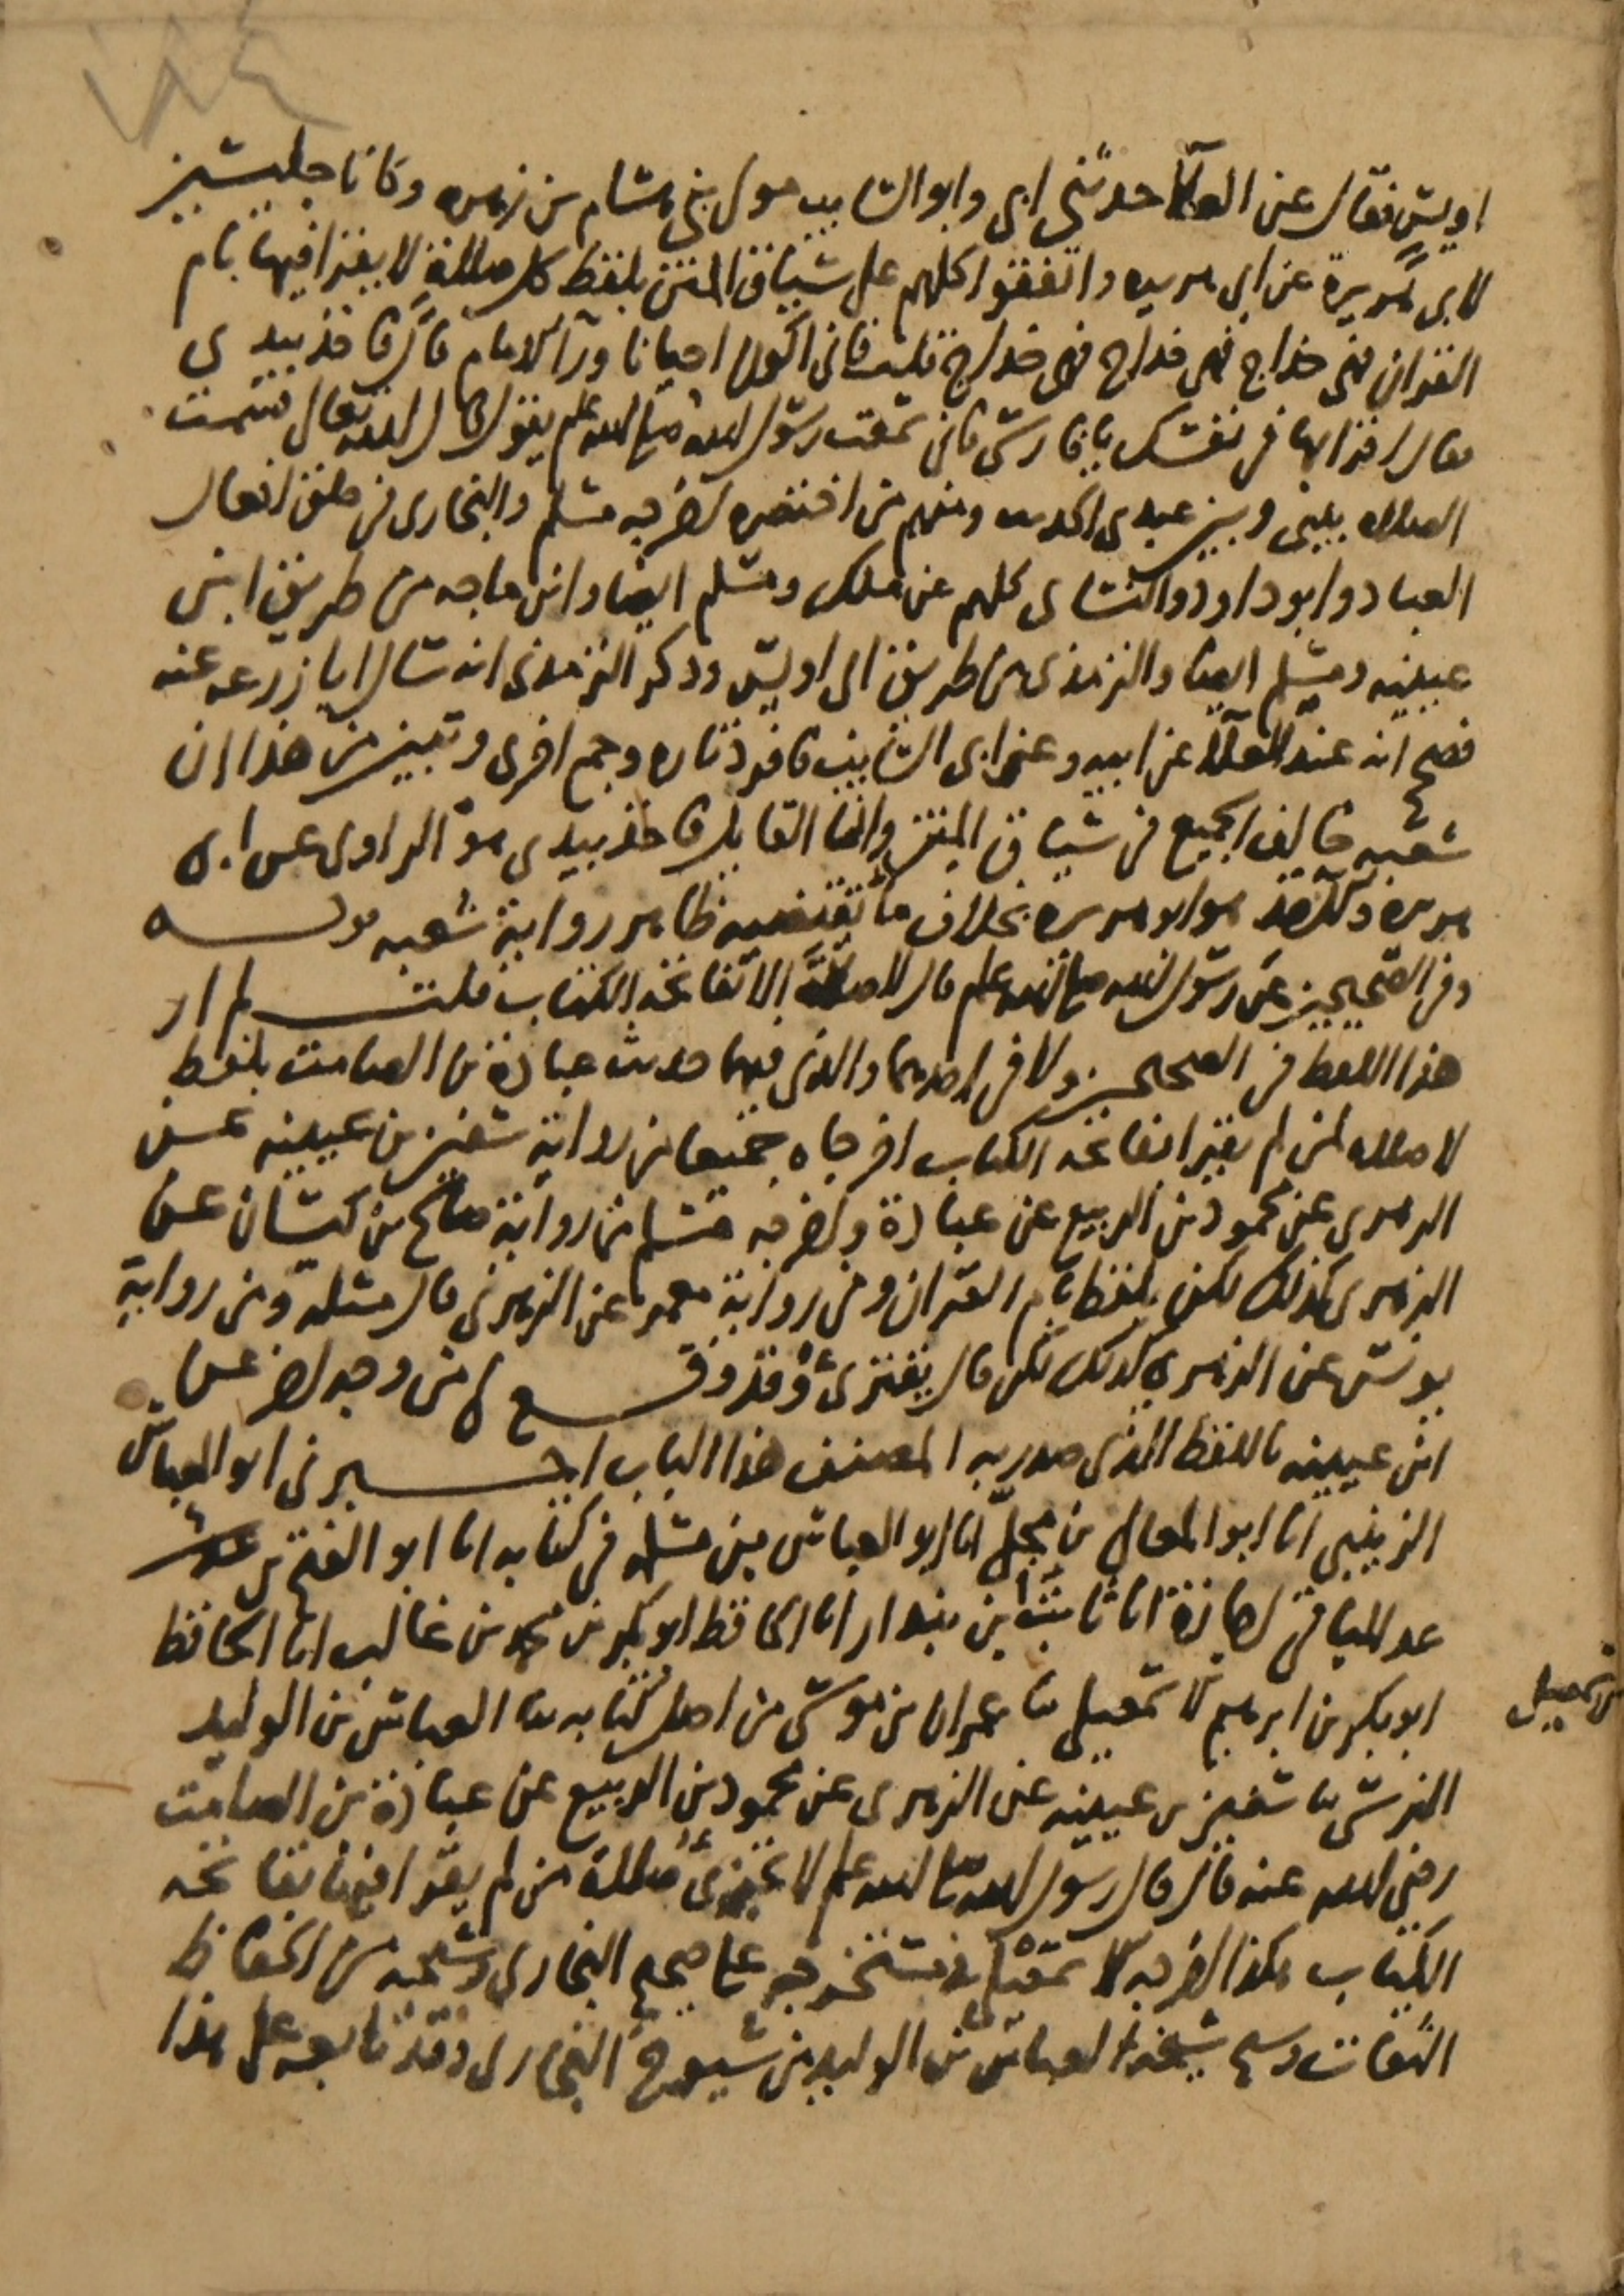 ١٨٤
اويس فقال عن العلا حدثني ابي وابو السايب مولى بني هشام بن زهرة وكانا جليسين
لابي هريرة عن ابي هريرة واتفقوا كلهم على سياق المتن بلفظ كل صلاة لا يقرا فيها بام
القران فهي خداج فهي خداج فهي خداج قلت فاني اكون احيانا ورآ الامام قال فاخذ بيدي
فقال اقرا بها في نفسك يا فارسي فاني سمعت رسول الله صلى الله علم يقول قال الله تعالى قسمت
الصلاه بيني وبين عبدي الحديث ومنهم من اختصره اخرجه مسلم والبخاري في خلق افعال
العباد وابو داود والنساي كلهم عن ملك ومسلم ايضا وابن ماجه من طريق ابن
عيينه ومسلم ايضا والترمذي من طريق ابي اويس وذكر الترمذي انه سال ابا زرعه عنه
فصح انه عند العلا عن ابيه وعن ابي السايب فافرد تاره وجمع اخرى وتبين من هذا ان
شعبه خالف الجميع في سياق المتن وانما القايل فاخذ بيدي هو الراوي عن ابي
هريرة والآخذ هو ابو هريرة بخلاف ما تقتضيه ظاهر رواية شعبه قولـــه
وفي الصحيحين عن رسول الله صلى الله علم قال لا صلاة الا بفاتحه الكتاب قلت لم ار
هذا اللفظ في الصحيحين ولا في احدهما والذي فيهما حديث عبادة بن الصامت بلفظ
لا صلاه لمن لم يقرا بفاتحه الكتاب اخرجاه جميعا من رواية سفين بن عيينه عن
الزهري عن محمود بن الربيع عن عبادة واخرجه مسلم من رواية صالح بن كيسان عن
الزهري كذلك لكن بلفظ بام القران ومن رواية معمر عن الزهري قال مثله ومن رواية
يونس عن الزهري كذلك لكن قال يقترئ وقد وقـــع لي من وجه اخر عن
ابن عيينه باللفظ الذي صدر به المصنف هذا الباب اخبـــرني ابو العباس
الزينبي انا ابو المعالي بن مجلي انا ابو العباس بن في كتابه انا ابو الفتح بن
عبد الباقي اجازة انا ثابت بن بندار انا الحافظ ابو بكر بن محمد بن غالب انا الحافظ
ابو بكر بن ابرهيم الاسمعيلي ثنا عمران بن موسى من اصل كتابه ثنا العباس بن الوليد
النرسي ثنا سفين بن عيينه عن الزهري عن محمود بن الربيع عن عبادة بن الصامت
رضي الله عنه قال قال رسول الله صلى الله علم لا تجزئ صلاة من لم يقرا فيها بفاتحه
الكتاب هكذا اخرجه الاسمعيلي في مستخرجه على صحيح البخاري وشيخه من الحفاظ
الثقات وشيخ شيخه العباس بن الوليد من شيوخ البخاري وقد تابعه على هذا